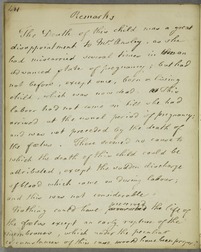 Remarks
The Death of this child was a great
disappointment to Mrs. as she
had miscarried several times in an
advanced state of pregnancy; but had
not before, except one, born a living
child, which was now dead. This
labor had not come on till she had
arrived at the usual period of pregnancy,
and was not preceded by the death of
the foetus. There seemed no cause to
which the death of this child could be
attributed, except the sudden discharge
of blood which came on during labour;
and this was not considerable.
Nothing could have the life of
the foetus except an early rupture of the
membranes, which under the peculiar
circumstances of this case, would have been